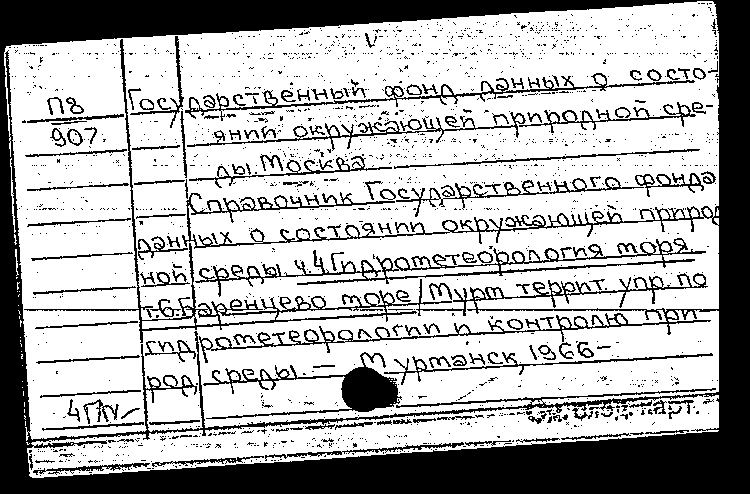 V
П8
907.
Государственный фонд данных о состо-
янии окружающей природной сре-
ды. Москва
Справочник Государственного фонда
данных о состоянии окружающей природ
ной среды. ч.4. Гидрометеорология моря.
т.6. Баренцево море / Мурм. террит. упр. по
гидрометеорологии и контролю при-
род. среды. — Мурманск, 1966–
См. след. карт.